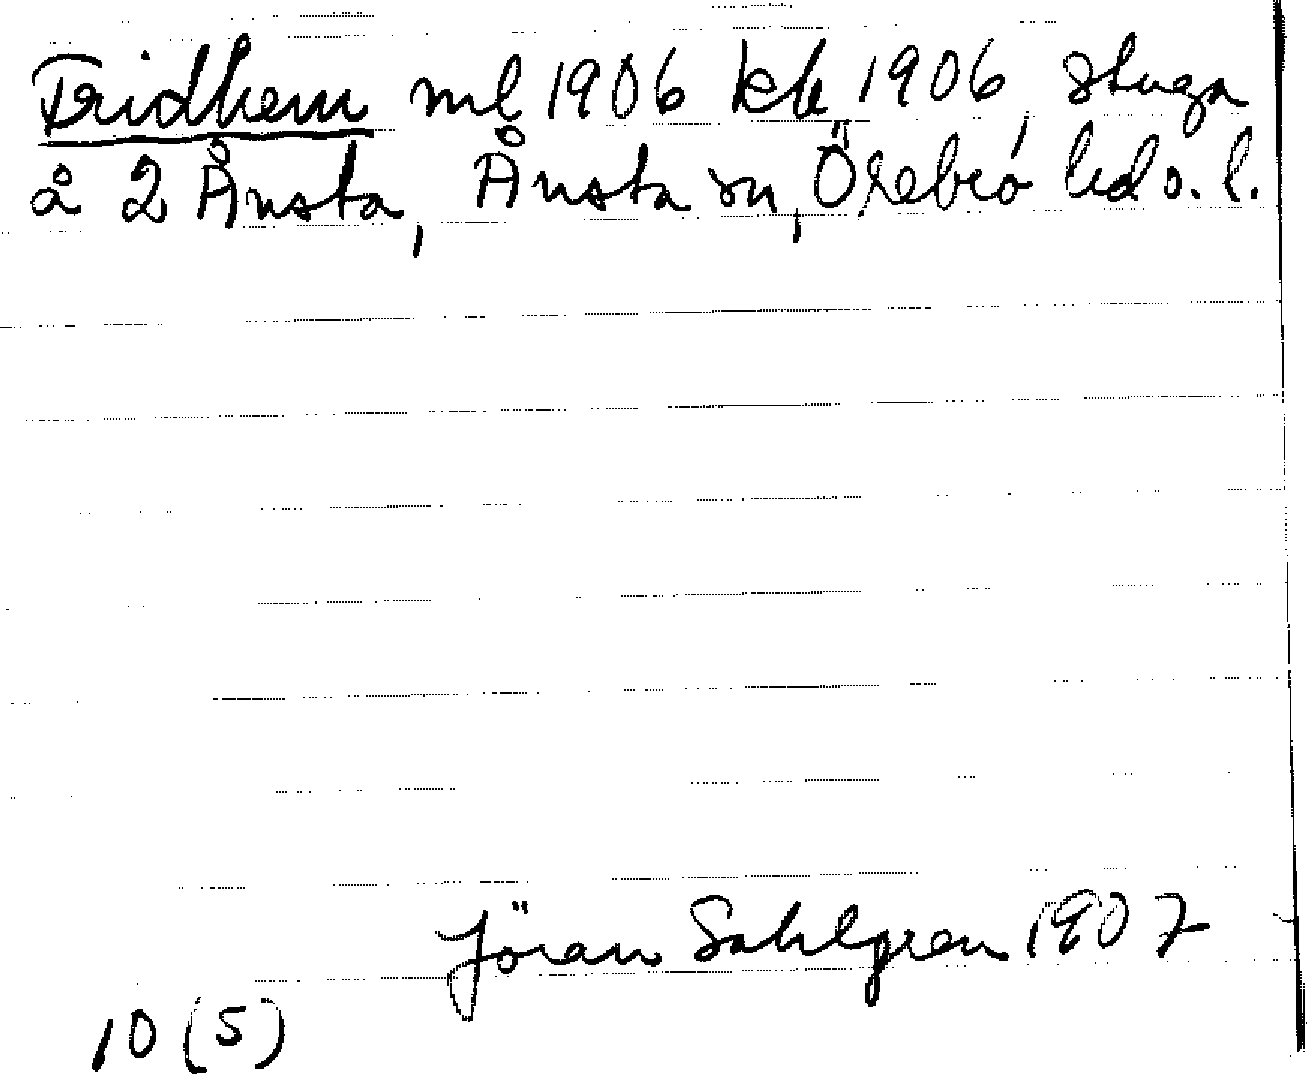 Fridhem ml 1906 kbk 1906, stuga
å 2 Ånsta, Ånsta sn, Örebro häd ö. l.
Jöran Sahlgren 1907
10 (5)